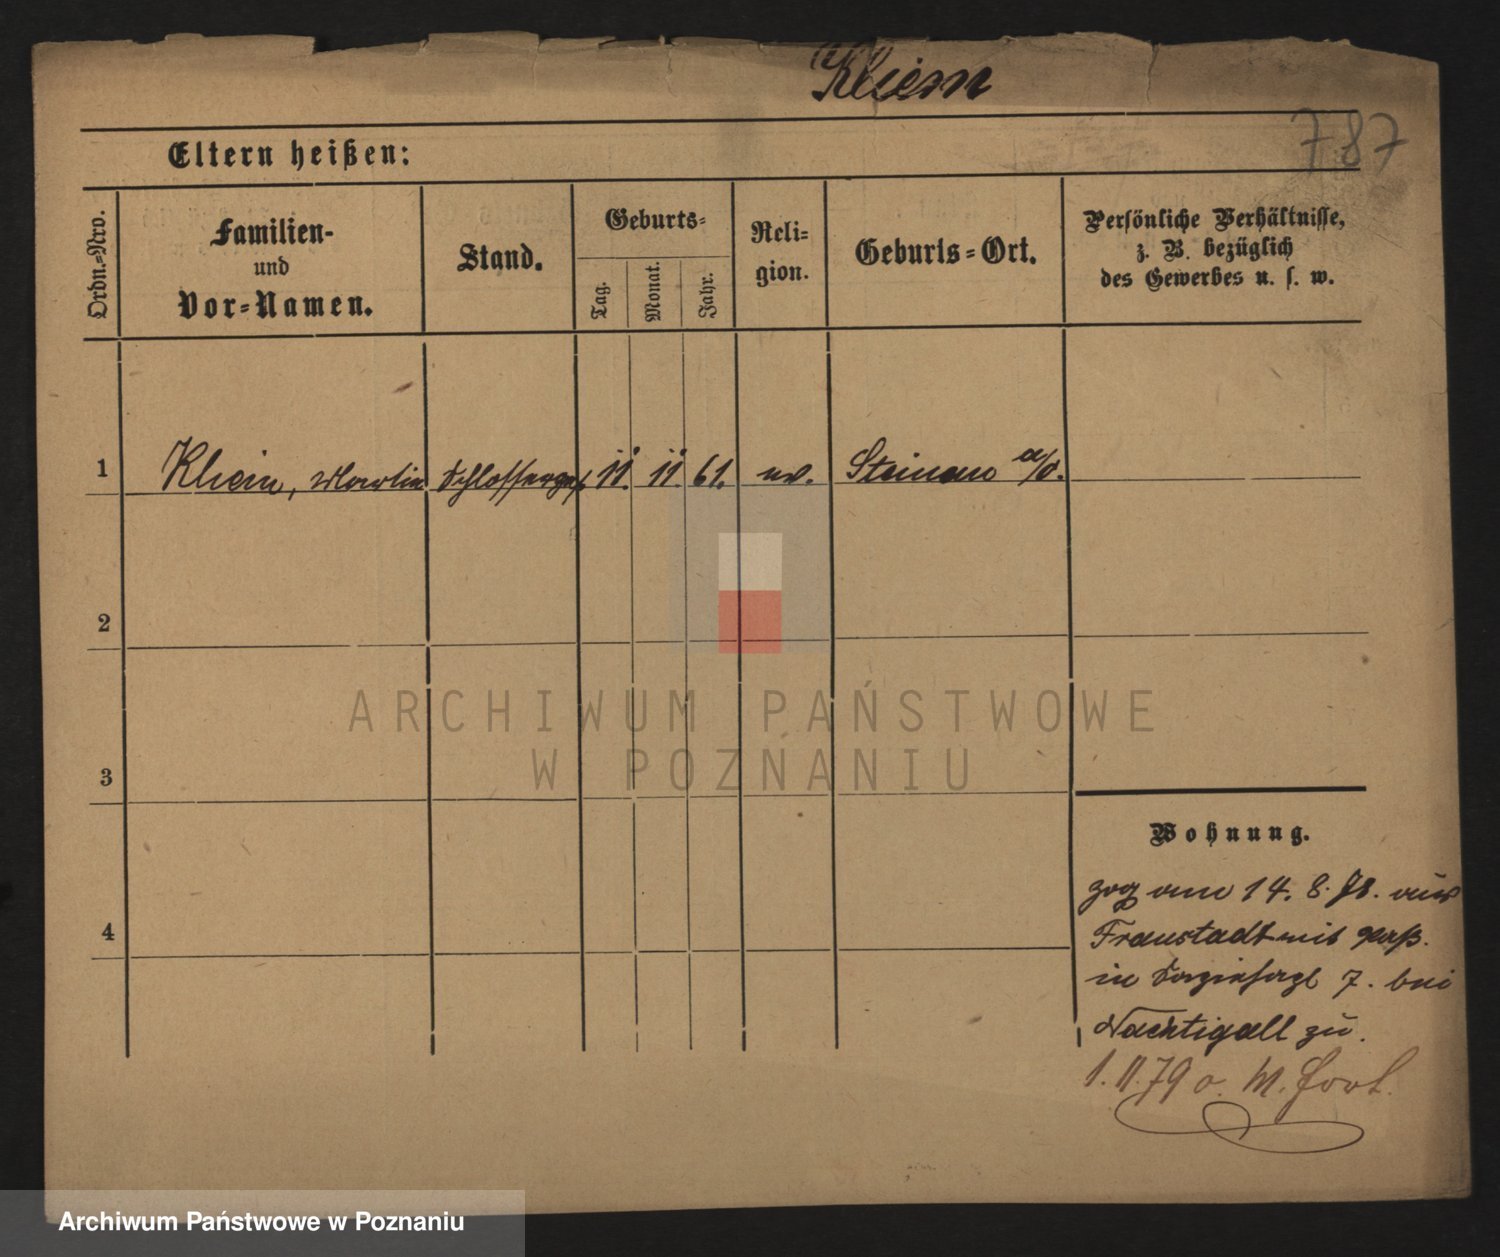 Kliem
787
Eltern heißen:
Ordn.=Nro.
Familien-
und
Vor=Namen.
Stand.
Geburts=
Tag.
Monat.
Jahr.
Reli=
gion.
Geburts=Ort.
Persönliche Verhältnisse,
z. B. bezüglich
des Gewerbes u. s. w.
1 Martin Schlosserges 11. 11. 61. ev. Steinau a/O.
2
3
4
ARCHIWUM PAŃSTWOWE
W POZNANIU
Wohnung.
zog am 14. 8. 78. aus
Fraustadt mit Paß.
in 7. bei
Nachtigall zu.
1.11.79 o. M. fort.
Archiwum Państwowe w Poznaniu